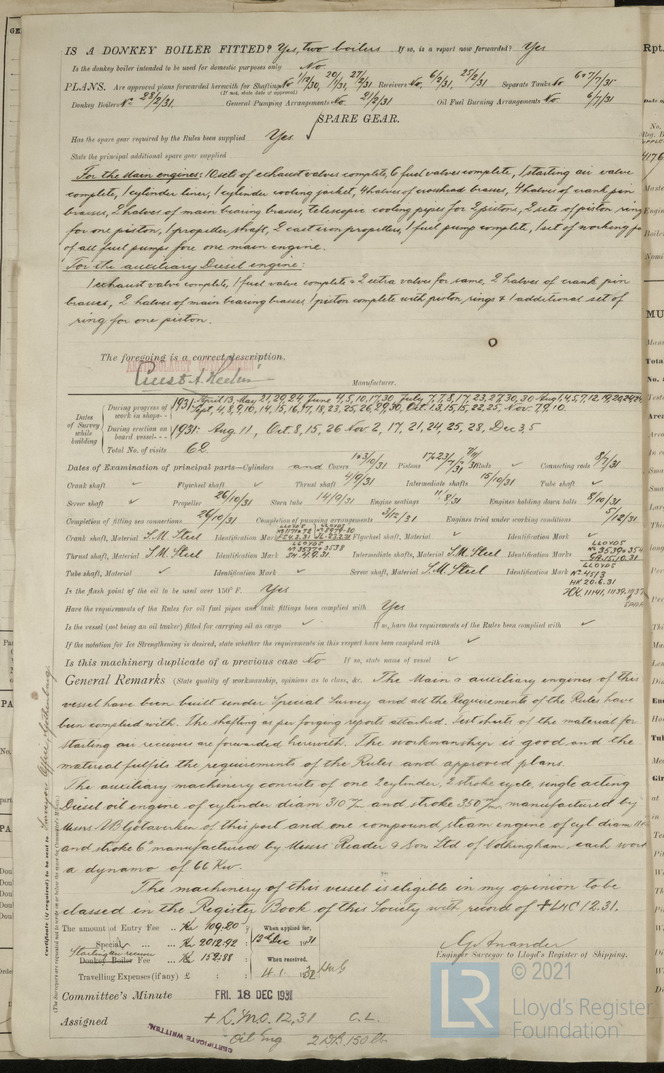 IS A DONKEY BOILER FITTED? Yes, two boilers If so, is a report now forwarded? Yes
Is the donkey boiler intended to be used for domestic purposes only No
PLANS. Are approved plans forwarded herewith for Shafting No Receivers No 6/2/31, 25/2/31 Separate Tanks No
(If not, state date of approval)
Donkey Boilers No 28/2/31. General Pumping Arrangements No. 21/2/31 Oil Fuel Burning Arrangements No 6/7/31
SPARE GEAR.
Has the spare gear required by the Rules been supplied Yes
State the principal additional spare gear supplied
For the main engines: 10 sets of exhaust valves complete, 6 fuel valves complete, 1 starting air valve
complete, 1 cylinder liner, 1 cylinder cooling jacket, 4 halves of crosshead brasses, 4 halves of crank pin
brasses, 2 halves of main bearing brasses, telescopic cooling pipes for 2 pistons, 2 sets of piston rings
for one piston, 1 propeller shaft, 2 cast iron propellers, 1 fuel pump complete, 1 set of working
of all fuel pumps fore one main engine.
For the auxiliary Diesel engine:
1 exhaust valve complete, 1 fuel valve complete + 2 extra valves for same, 2 halves of crank pin
brasses, 2 halves of main bearing brasses 1 piston complete with piston rings & 1 additional set of
ring for one piston.
The foregoing is a correct description,
Manufacturer.
Dates of Survey while building
During progress of work in shops - - 1931: April 13, May 21, 20, 24 June 4, 5, 10, 17, 30 July 7, 7, 8, 17, 23, 27, 30, 30 Aug 1, 4, 5, 7, 12, 19, 20
Sept. 4, 8, 9, 10, 14, 15, 16, 17, 18, 23, 25, 26, 29, 30, Oct. 13, 15, 15, 22, 25, Nov. 7, 9, 10.
During erection on board vessel - - - 1931: Aug. 11, Oct. 8, 15, 26 Nov 2, 17, 21, 24, 25, 28, Dec 3, 5
Total No. of visits 62
Dates of Examination of principal parts—Cylinders and Covers Pistons Rods ✓ Connecting rods 8/7/31
Crank shaft ✓ Flywheel shaft ✓ Thrust shaft 4/9/31 Intermediate shafts 15/10/31 Tube shaft ✓
Screw shaft ✓ Propeller 26/10/31 Stern tube 14/9/31 Engine seatings 11/8/31 Engines holding down bolts 8/10/31
Completion of fitting sea connections 26/10/31 Completion of pumping arrangements 3/12/31 Engines tried under working conditions 5/12/31
Crank shaft, Material S.M. Steel Identification Mark Flywheel shaft, Material ✓ Identification Mark ✓
Thrust shaft, Material S.M. Steel Identification Mark LLOYDS No 3537+3538 Intermediate shafts, Material S.M. Steel Identification Marks LLOYDS
Tube shaft, Material ✓ Identification Mark ✓ Screw shaft, Material S.M. Steel Identification Mark LLOYDS No 4513
HK 20.6.31
Is the flash point of the oil to be used over 150° F. Yes
Have the requirements of the Rules for oil fuel pipes and tank fittings been complied with Yes
Is the vessel (not being an oil tanker) fitted for carrying oil as cargo ✓ If so, have the requirements of the Rules been complied with ✓
If the notation for Ice Strengthening is desired, state whether the requirements in this respect have been complied with ✓
Is this machinery duplicate of a previous case No If so, state name of vessel ✓
General Remarks (State quality of workmanship, opinions as to class, &c. The Main & auxiliary engines of this
vessel have been built under Special Survey and all the Requirements of the Rules have
been complied with. The shafting as per forging reports attached. Test sheets of the material for
starting air receivers are forwarded herewith. The workmanship is good and the
material fulfils the requirements of the Rules and approved plans.
The auxiliary machinery consists of one 2 cylinder, 2 stroke cycle, single acting
Diesel oil engine of cylinder diam 310 and stroke 350 manufactured by
Messrs AB Götaverken of this port and one compound steam engine of cyl diam
and stroke 6" manufactured by Messrs Reader & Son Ltd of Nottingham, each work
a dynamo of 66 Kw.
The machinery of this vessel is eligible in my opinion to be
classed in the Register Book of this Society with record of + LMC 12.31.
The amount of Entry Fee .. Kr 109.20 : When applied for,
Special ... Kr 2012.92 : 12th Dec 1931
Starting air receiver
Donkey Boiler Fee ... Kr 152.88 : When received,
Travelling Expenses (if any) £
Engineer Surveyor to Lloyd's Register of Shipping.
Committee's Minute FRI. 18 DEC 1931
Assigned + L.M.C. 12,31 C.L.
Oil Eng 2DB. 150 lb
CERTIFICATE WRITTEN.
© 2021
LR
Lloyd's Register
Foundation